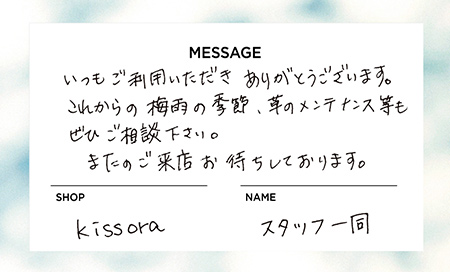 MESSAGE
いつもご利用いただきありがとうございます。
これからの梅雨の季節、革のメンテナンス等も
ぜひご相談下さい。
またのご来店お待ちしております。
SHOP
kissora
NAME
スタッフ一同